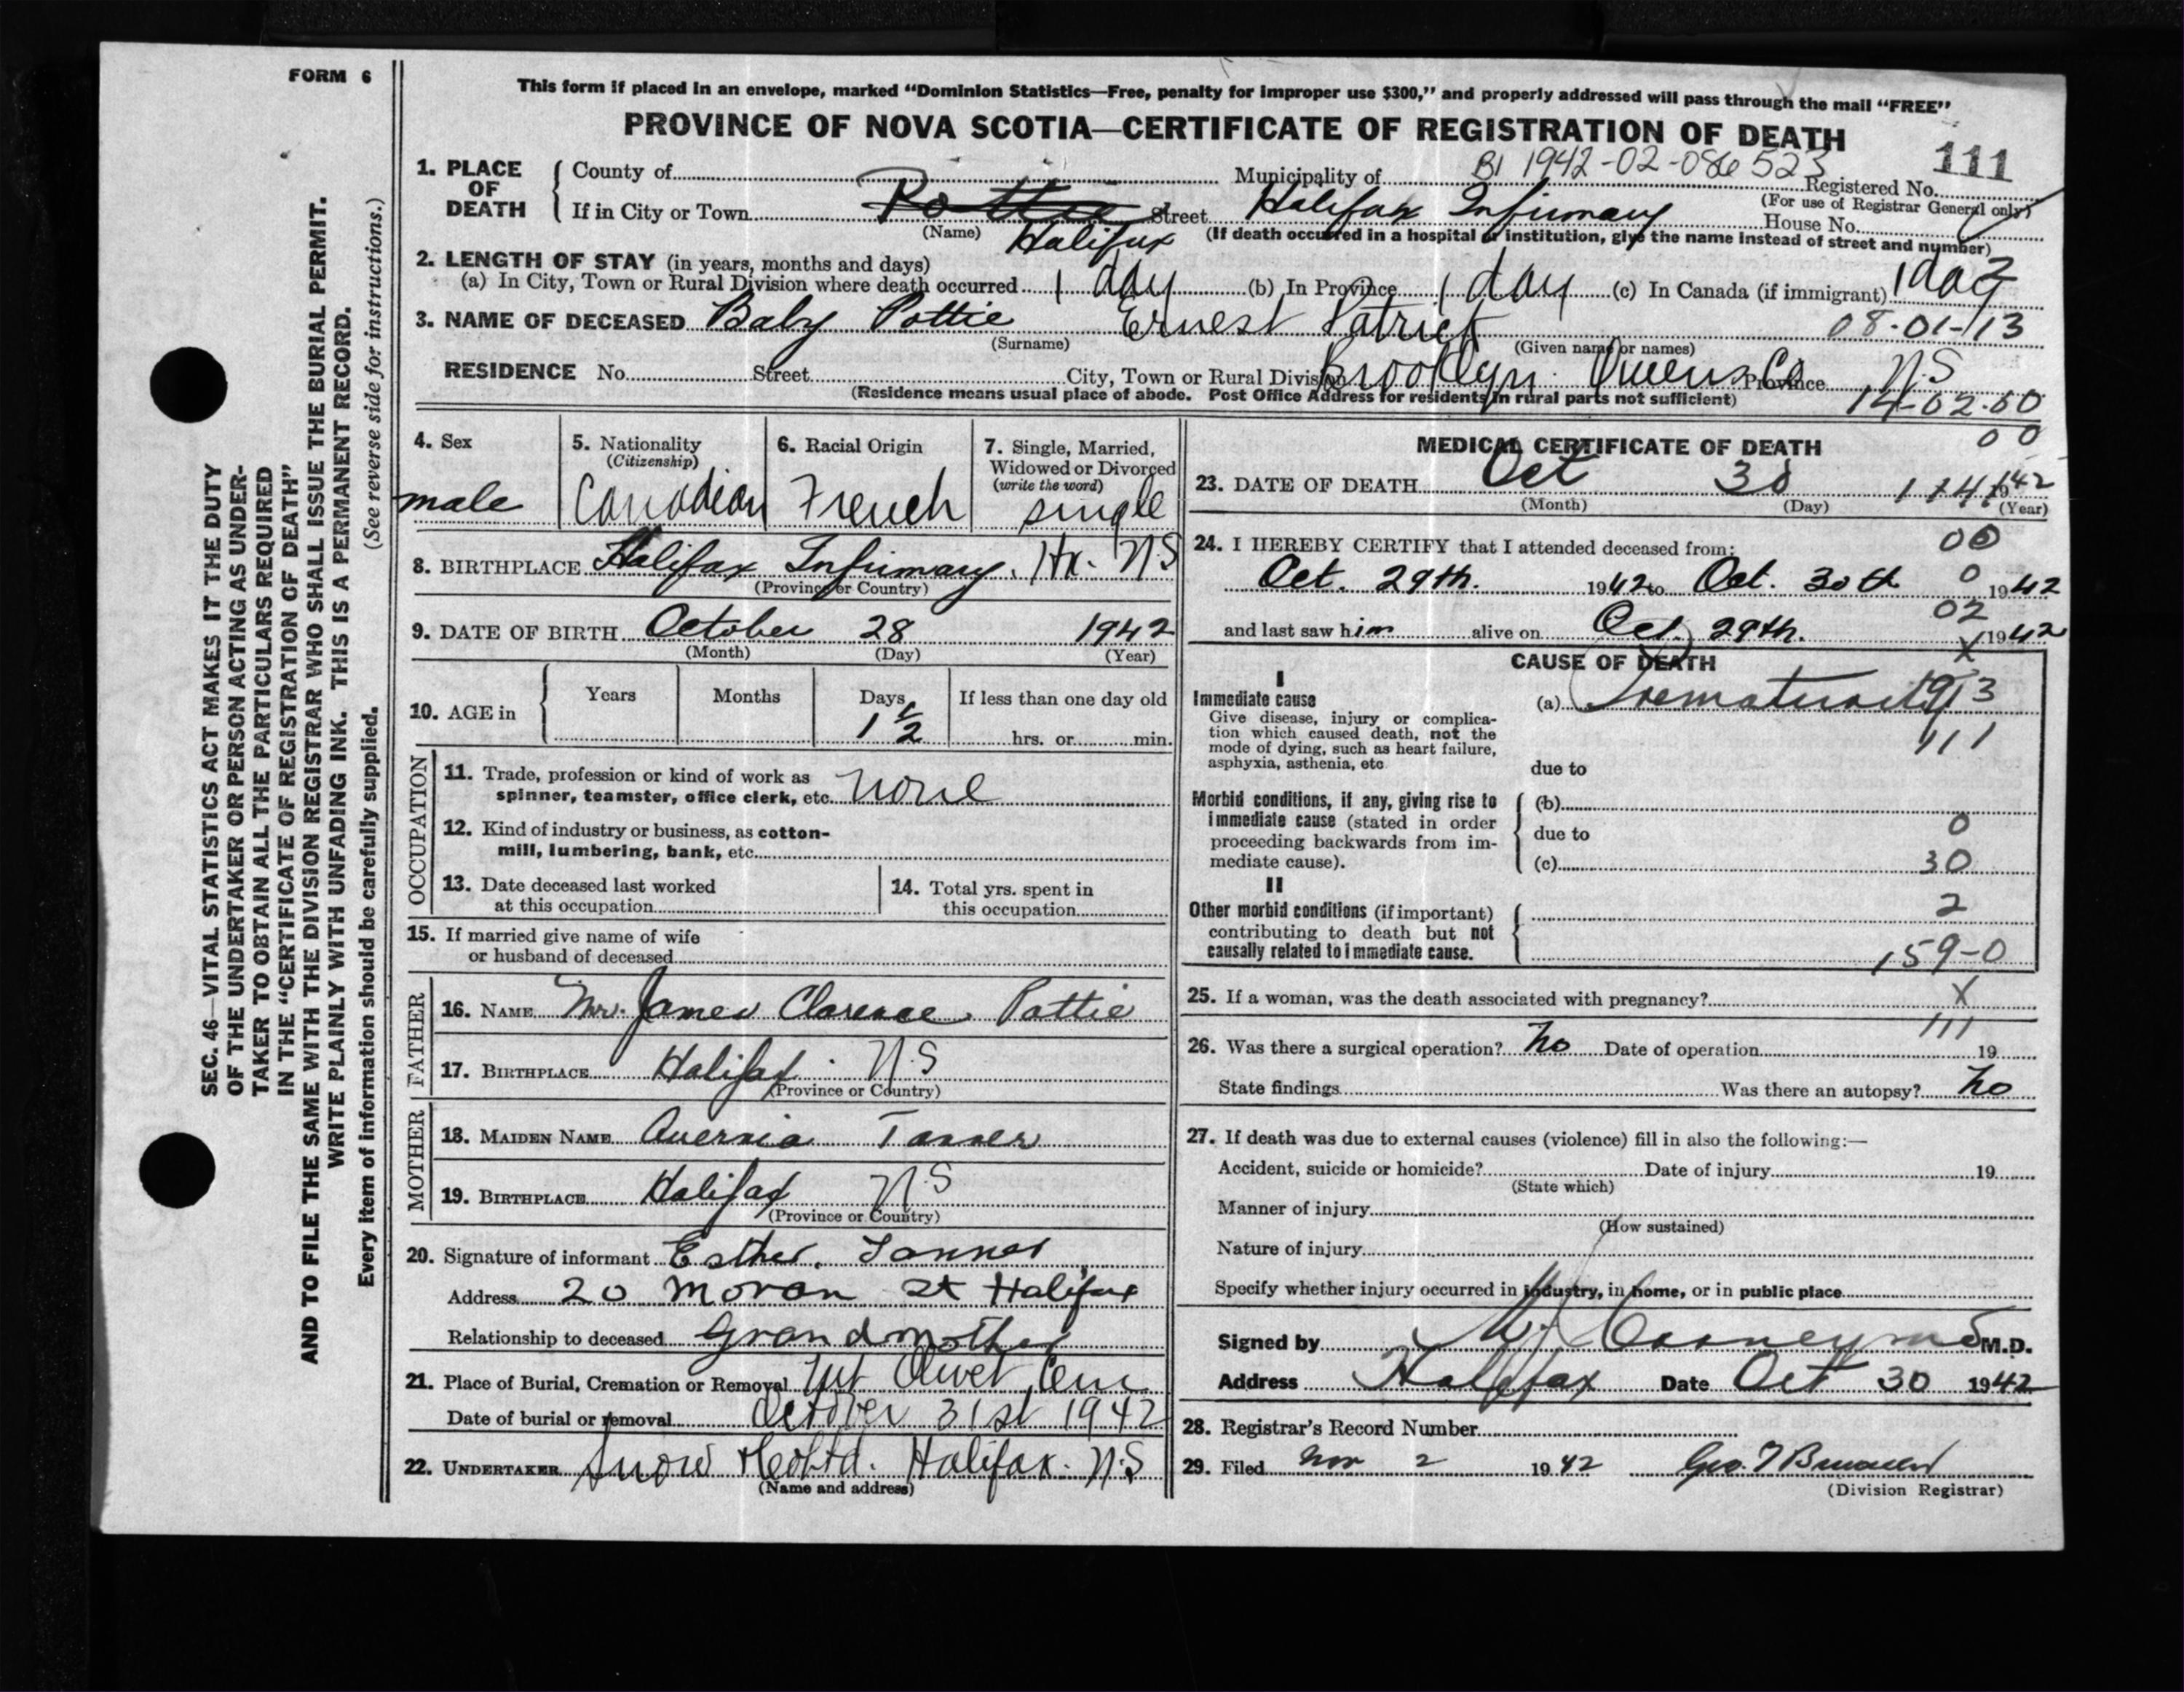 FORM 6
This form if placed in an envelope, marked “Dominion Statistics—Free, penalty for improper use $300,” and properly addressed will pass through the mail “FREE”
PROVINCE OF NOVA SCOTIA—CERTIFICATE OF REGISTRATION OF DEATH
111
BI 1942-02-086523
1. PLACE OF DEATH { County of Municipality of Registered No.
(For use of Registrar General only)
If in City or Town Pottie Halifax Street Halifax Infirmary House No.
(Name) (If death occurred in a hospital or institution, give the name instead of street and number)
2. LENGTH OF STAY (in years, months and days)
(a) In City, Town or Rural Division where death occurred 1 day (b) In Province 1 day (c) In Canada (if immigrant) 1 day
3. NAME OF DECEASED Baby Pottie Ernest Patrick 08-01-13
(Surname) (Given name or names)
RESIDENCE No. Street City, Town or Rural Division Brooklyn Queens Co Province N.S
(Residence means usual place of abode. Post Office Address for residents in rural parts not sufficient) 14-02.00
SEC. 46—VITAL STATISTICS ACT MAKES IT THE DUTY
OF THE UNDERTAKER OR PERSON ACTING AS UNDER-
TAKER TO OBTAIN ALL THE PARTICULARS REQUIRED
IN THE “CERTIFICATE OF REGISTRATION OF DEATH”
AND TO FILE THE SAME WITH THE DIVISION REGISTRAR WHO SHALL ISSUE THE BURIAL PERMIT.
WRITE PLAINLY WITH UNFADING INK. THIS IS A PERMANENT RECORD.
Every item of information should be carefully supplied. (See reverse side for instructions.)
4. Sex male
5. Nationality (Citizenship) Canadian
6. Racial Origin French
7. Single, Married, Widowed or Divorced (write the word) single
8. BIRTHPLACE Halifax Infirmary. Hx. N.S
(Province or Country)
9. DATE OF BIRTH October 28 1942
(Month) (Day) (Year)
10. AGE in { Years Months Days 1 1/2 If less than one day old hrs. or min.
OCCUPATION
11. Trade, profession or kind of work as
spinner, teamster, office clerk, etc. none
12. Kind of industry or business, as cotton-
mill, lumbering, bank, etc.
13. Date deceased last worked
at this occupation
14. Total yrs. spent in
this occupation
15. If married give name of wife
or husband of deceased
FATHER
16. NAME Mr. James Clarence Pottie
17. BIRTHPLACE Halifax N.S
(Province or Country)
MOTHER
18. MAIDEN NAME Tanner
19. BIRTHPLACE Halifax N.S
(Province or Country)
20. Signature of informant Esther Tanner
Address 20 Moran St Halifax
Relationship to deceased Grandmother
21. Place of Burial, Cremation or Removal Mt Olivet Cem
Date of burial or removal October 31st 1942
22. UNDERTAKER Snow & Co Ltd. Halifax. N.S
(Name and address)
MEDICAL CERTIFICATE OF DEATH 00
23. DATE OF DEATH Oct 30 1942
(Month) (Day) (Year)
24. I HEREBY CERTIFY that I attended deceased from: 00
Oct. 29th. 1942 to Oct. 30th 0 1942
02
and last saw him alive on Oct. 29th. 1942
X
CAUSE OF DEATH
I
Immediate cause
Give disease, injury or complica-
tion which caused death, not the
mode of dying, such as heart failure,
asphyxia, asthenia, etc
(a) Prematurity 913
111
due to
Morbid conditions, if any, giving rise to
immediate cause (stated in order
proceeding backwards from im-
mediate cause).
(b)
0
due to
(c) 30
II
Other morbid conditions (if important)
contributing to death but not
causally related to immediate cause.
2
159-0
25. If a woman, was the death associated with pregnancy? X
111
26. Was there a surgical operation? No Date of operation 19
State findings Was there an autopsy? No
27. If death was due to external causes (violence) fill in also the following:—
Accident, suicide or homicide? Date of injury 19
(State which)
Manner of injury
(How sustained)
Nature of injury
Specify whether injury occurred in industry, in home, or in public place
Signed by M.D.
Address Halifax Date Oct 30 1942
28. Registrar’s Record Number
29. Filed Nov 2 1942 Geo.
(Division Registrar)